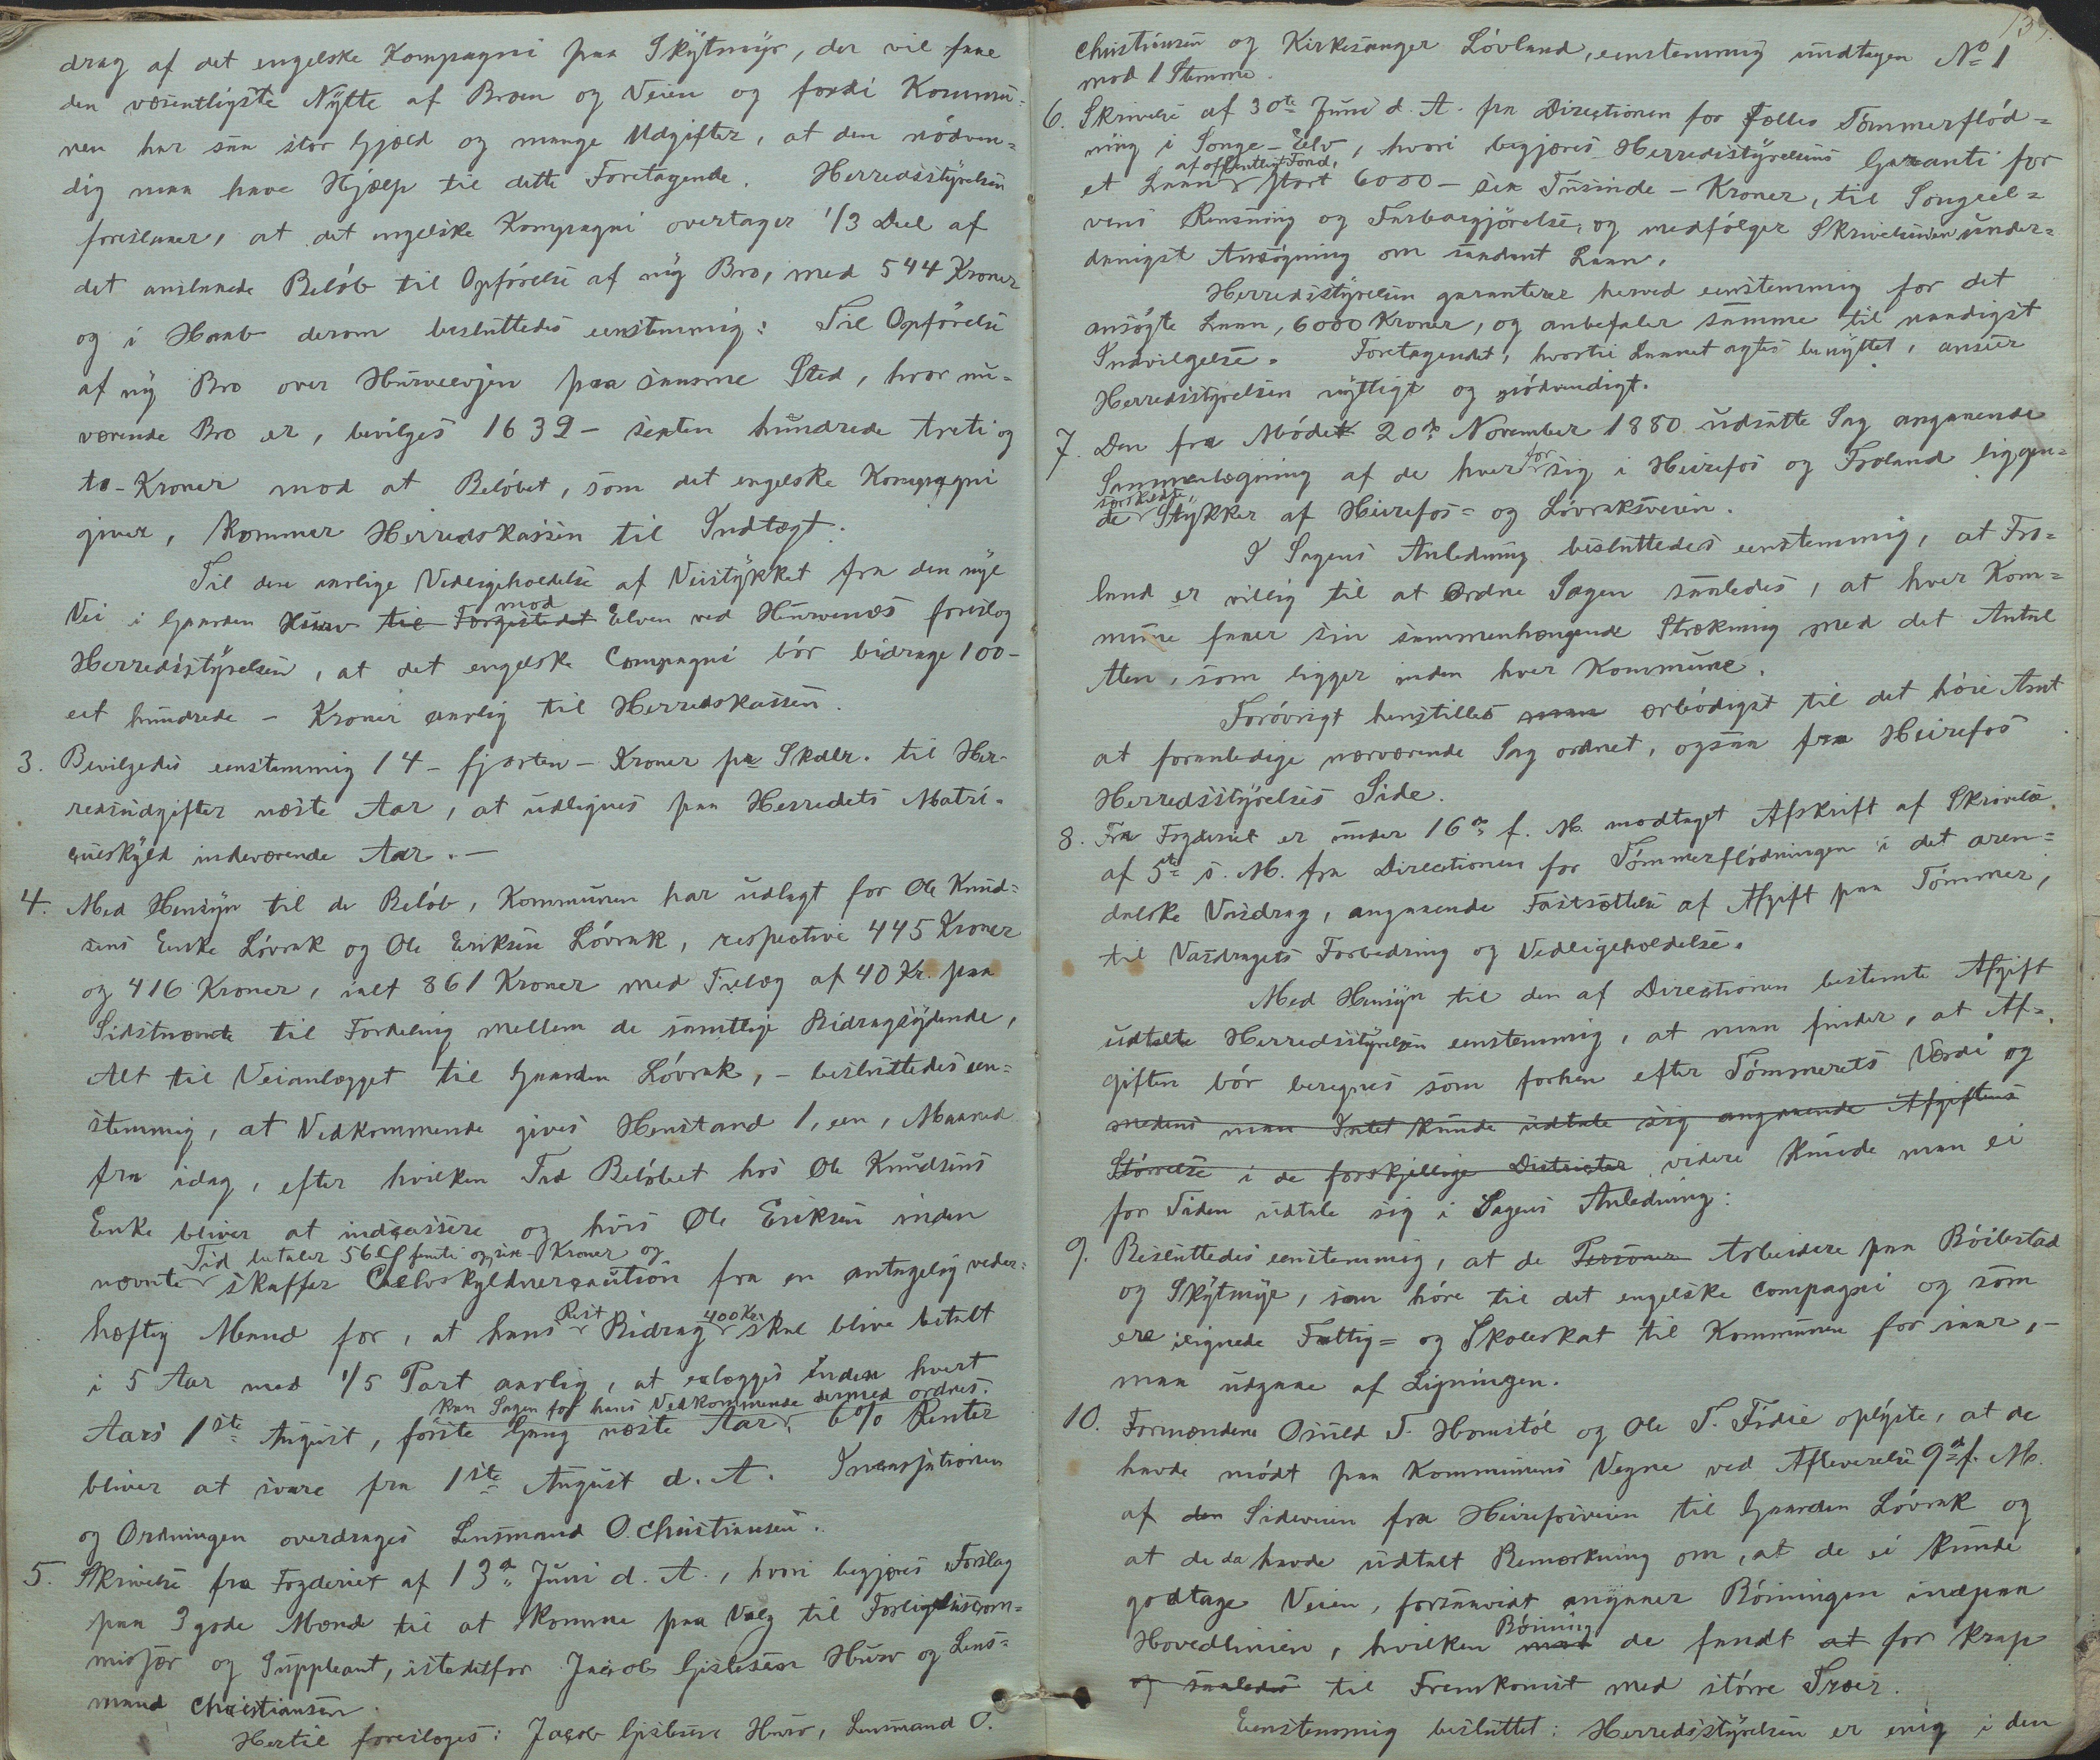 drag af det engelske Kompagni paa Skytmyr, der vil faae
den væsentligste Nytte af Broen og Veien og fordi Kommu-
nen har saa stor Gjæld og mange Udgifter, at den nødven-
dig maa have Hjælp til dette Foretagende. Herredsstyrelsen
foreslaaer, at det engelske Kompagni overtager 1/3 Deel af
det anslaaede Beløb til Opførelse af ny Bro, med 544 Kroner
og i Haab derom besluttedes eenstemmig: Til Opførelse
af ny Bro over Hurveelven paa samme Sted, hvor nu-
værende Bro er, bevilges 1632 - sexten hundrede treti og
to - Kroner mod at Beløbet, som det engelske Kompagni
giver, kommer Herredskassen til Indtægt.
Til den aarlige Vedligeholdelse af Veistykket fra den nye
Vei i Gaarden Hurv til Forgjistedet mod Elven ved Hurvenes foreslog
Herredsstyrelsen, at det engelske Compagni bør bidrage 100 -
eet hundrede - Kroner aarlig til Herredskassen.
3. Bevilgedes eenstemmig 14 - fjorten - Kroner pr Skdlr. til Her-
redsudgifter næste Aar, at udlignes paa Herredets Matri-
culskyld indeværende Aar. -
4. Med Hensyn til de Beløb, Kommunen har udlagt for Ole Knud-
sens Enke Løvrak og Ole Eriksen Løvrak, respective 445 Kroner
og 416 Kroner, ialt 861 Kroner med Tillæg af 40 Kr. paa
Sidstnævnte til Fordeling mellem de samtlige Bidragsydende,
Alt til Veianlægget til Gaarden Løvrak, - besluttedes een-
stemmig, at Vedkommende gives Henstand 1, een, Maaned
fra idag, efter hvilken Tid Beløbet hos Ole Knudsens
Enke bliver at indcassere og hvis Ole Eriksen inden
Tid betaler 56 - femti og sex - Kroner og
nævnte skaffer Selvskyldnercaution fra en antagelig veder-
hæftig Mand for, at hans Rest Bidrag 400 Kr. skal blive betalt
i 5 Aar med 1/5 Part aarlig, at erlægges inden hvert
kan Sagen for hans Vedkommende dermed ordnes.
Aars 1ste August, første Gang næste Aar, 6% Renter
bliver at svare fra 1ste August d. A. Incassationen
og Ordningen overdrages Lensmand O. Christiansen.
5. Skrivelse fra Fogderiet af 13de Juni d. A., hvori begjæres Forslag
paa 3 gode Mænd til at komme paa Valg til Forligelsescom-
misær og Suppleant, istedetfor Jacob Gislesen Hurv og Lens-
mand Christiansen.
Hertil foresloges: Jacob Gislesen Hurv, Lensmand O.
139.
Christiansen og Kirkesanger Løvland, eenstemmig undtagen No 1
mod 1 Stemme.
6. Skrivelse af 30te Juni d. A. fra Directionen for fælles Tømmerflød-
ning i Songe-Elv, hvori begjæres Herredsstyrelsens Garanti for
et Laan af offentligt Fond, stort 6000 - sex Tusinde - Kroner, til Songeel-
vens Rensning og Farbargjørelse, og medfølger Skrivelsen under-
danigst Ansøgning om saadant Laan.
Herredsstyrelsen garanterer herved eenstemmig for det
ansøgte Laan, 6000 Kroner, og anbefaler samme til naadigst
Indvilgelse. Foretagendet, hvortil Laanet agtes benyttet, anseer
Herredsstyrelsen nyttigt og nødvendigt.
7. Den fra Mødet 20de November 1880 udsatte Sag angaaende
Sammenlægning af de hver for sig i Heirefos og Froland liggen-
de særskilte Stykker af Heirefos- og Løvraksveien.
I Sagens Anledning besluttedes eenstemmig, at Fro-
land er villig til at ordne Sagen saaledes, at hver Kom-
mune faaer sin sammenhængende Strækning med det Antal
Alen, som ligger inden hver Kommune.
Forøvrigt henstilles man ærbødigst til det høie Amt
at foranledige nærværende Sag ordnet, ogsaa fra Heirefos
Herredsstyrelses Side.
8. Fra Fogderiet er under 16de f. M. modtaget Afskrift af Skrivelse
af 5te s. M. fra Directionen for Tømmerflødningen i det aren-
dalske Vasdrag, angaaende Fastsættelse af Afgift paa Tømmer,
til Vasdragets Forbedring og Vedligeholdelse.
Med Hensyn til den af Directionen bestemte Afgift
udtalte Herredsstyrelsen eenstemmig, at man finder, at Af-
giften bør beregnes som forhen efter Tømmerets Værdi og
medens man Intet kunde udtale sig angaaende Afgiftens
Størrelse i de forskjellige Districter videre kunde man ei
for Tiden udtale sig i Sagens Anledning:
9. Besluttedes eenstemmig, at de Personer Arbeidere paa Bøilestad
og Skytmyr, som høre til det engelske Compagni og som
ere ilignede Fattig- og Skoleskat til Kommunen for iaar, -
maa udgaae af Ligningen.
10. Formændene Osuld T. Homstøl og Ole T. Fidie oplyste, at de
havde mødt paa Kommunens Vegne ved Afleverelse 9de f. M.
af den Sideveien fra Heirefosveien til Gaarden Løvrak og
at de da havde udtalt Bemærkning om, at de ei kunde
godtage Veien, forsaavidt angaaer Bøiningen indpaa
Hovedlinien, hvilken Bøining man de fandt at for krap
og saaledes til Fremkomst med større Træer.
Eenstemmig besluttet: Herredsstyrelsen er enig i den